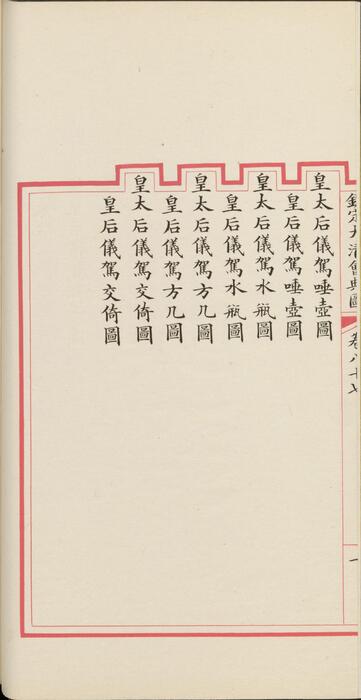 皇太后儀駕唾壺圖
皇后儀駕唾壺圖
皇太后儀駕水瓶圖
皇后儀駕水瓶圖
皇太后儀駕方几圖
皇后儀駕方几圖
皇太后儀駕交倚圖
皇后儀駕交倚圖
欽定大清會典圖
卷八十七
一